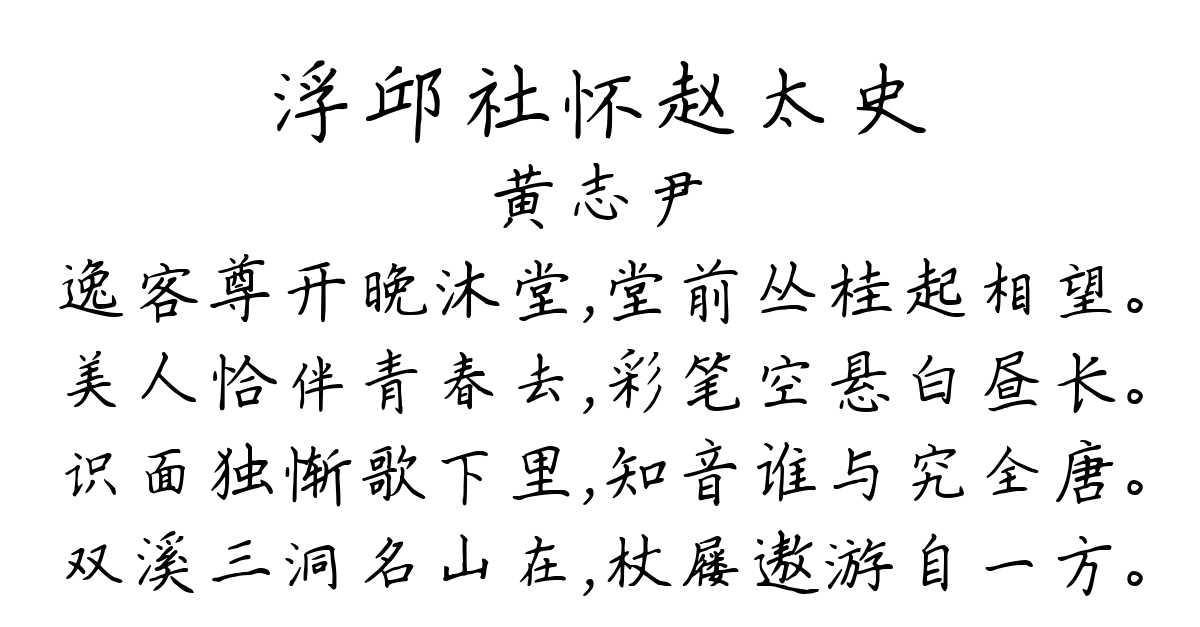 浮邱社怀赵太史
黄志尹
逸客尊开晚沐堂,堂前丛桂起相望。
美人恰伴青春去,彩笔空悬白昼长。
识面独惭歌下里,知音谁与究全唐。
双溪三洞名山在,杖屦遨游自一方。